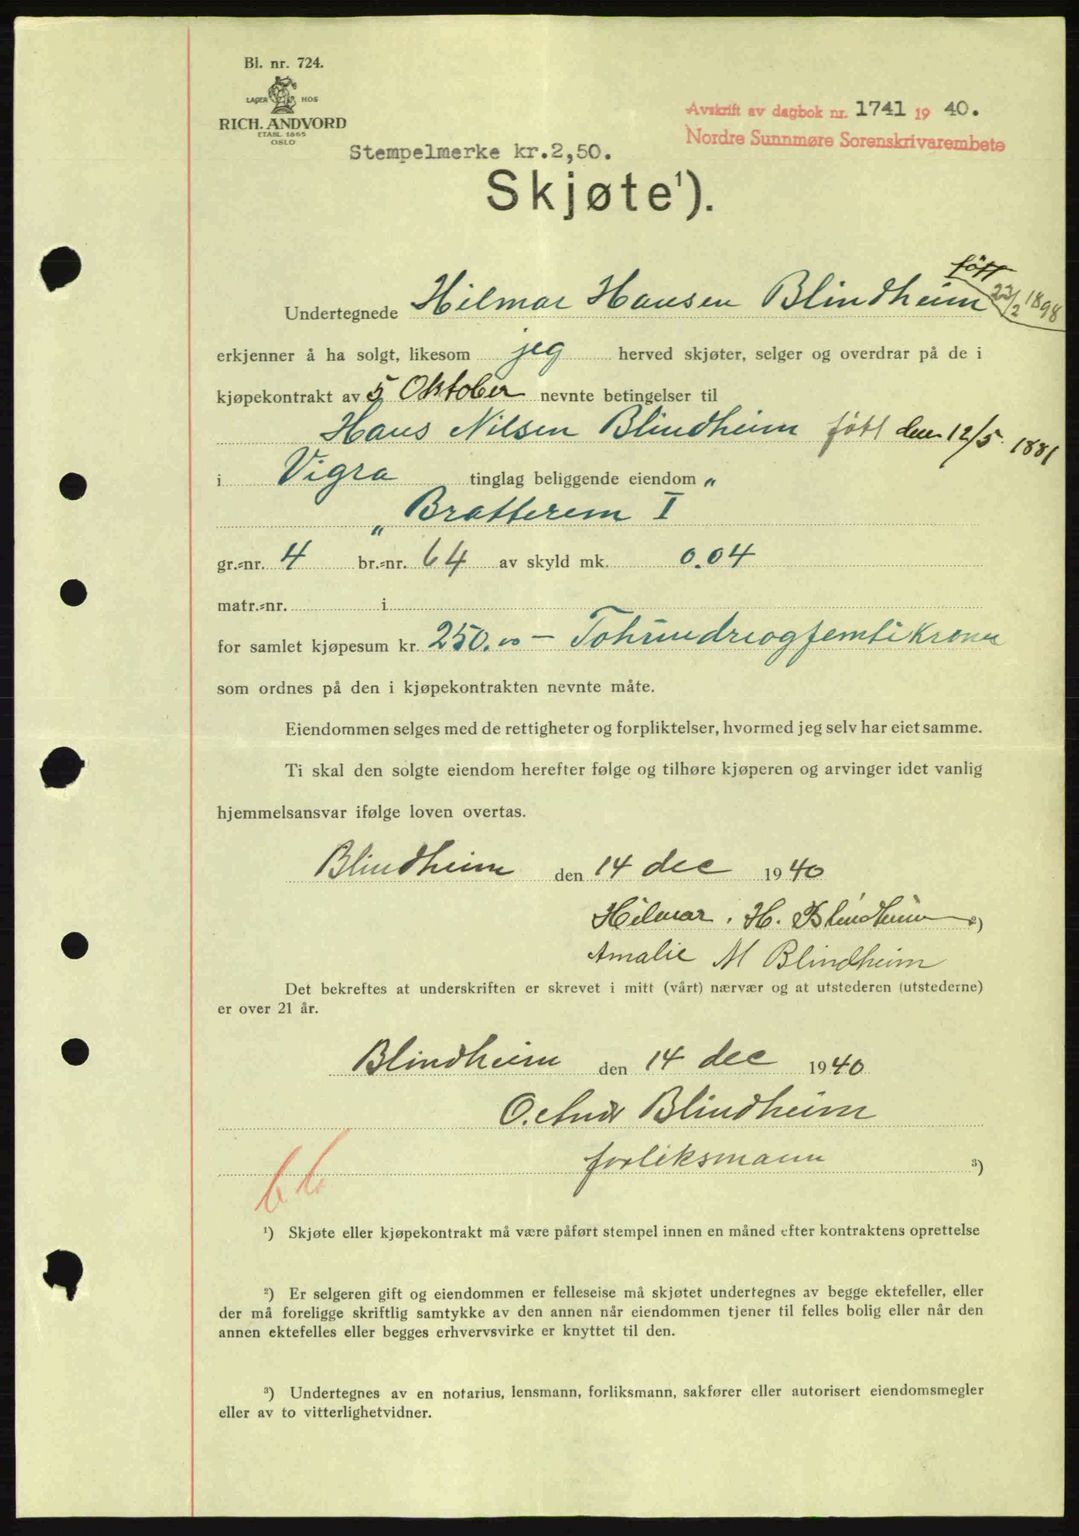 Bl. nr. 724.
LAGER HOS
RICH. ANDVORD
ETABL. 1865
OSLO
Avskrift av dagbok nr. 1741 19 40.
Nordre Sunnmøre Sorenskrivarembete
Stempelmerke kr.2,50.
Skjøte¹).
født
Undertegnede Hilmar Hansen Blindheim 23/2 1898
erkjenner å ha solgt, likesom jeg herved skjøter, selger og overdrar på de i
kjøpekontrakt av 5 Oktober nevnte betingelser til
Hans Nilsen Blindheim født den 12/5 1881
i Vigra tinglag beliggende eiendom "
" Bratterem I
gr.-nr. 4 br.-nr. 64 av skyld mk. 0.04
matr.-nr. i
for samlet kjøpesum kr. 250.00 — Tohundreogfemtikroner
som ordnes på den i kjøpekontrakten nevnte måte.
Eiendommen selges med de rettigheter og forpliktelser, hvormed jeg selv har eiet samme.
Ti skal den solgte eiendom herefter følge og tilhøre kjøperen og arvinger idet vanlig
hjemmelsansvar ifølge loven overtas.
Blindheim den 14 dec 1940
Hilmar. H. Blindheim ²)
Amalie M Blindheim
Det bekreftes at underskriften er skrevet i mitt (vårt) nærvær og at utstederen (utstederne)
er over 21 år.
Blindheim den 14 dec 1940
O. Blindheim
forliksmann ³)
66
¹) Skjøte eller kjøpekontrakt må være påført stempel innen en måned efter kontraktens oprettelse
²) Er selgeren gift og eiendommen er felleseise må skjøtet undertegnes av begge ektefeller, eller
der må foreligge skriftlig samtykke av den annen når eiendommen tjener til felles bolig eller når den
annen ektefelles eller begges erhvervsvirke er knyttet til den.
³) Undertegnes av en notarius, lensmann, forliksmann, sakfører eller autorisert eiendomsmegler
eller av to vitterlighetvidner.